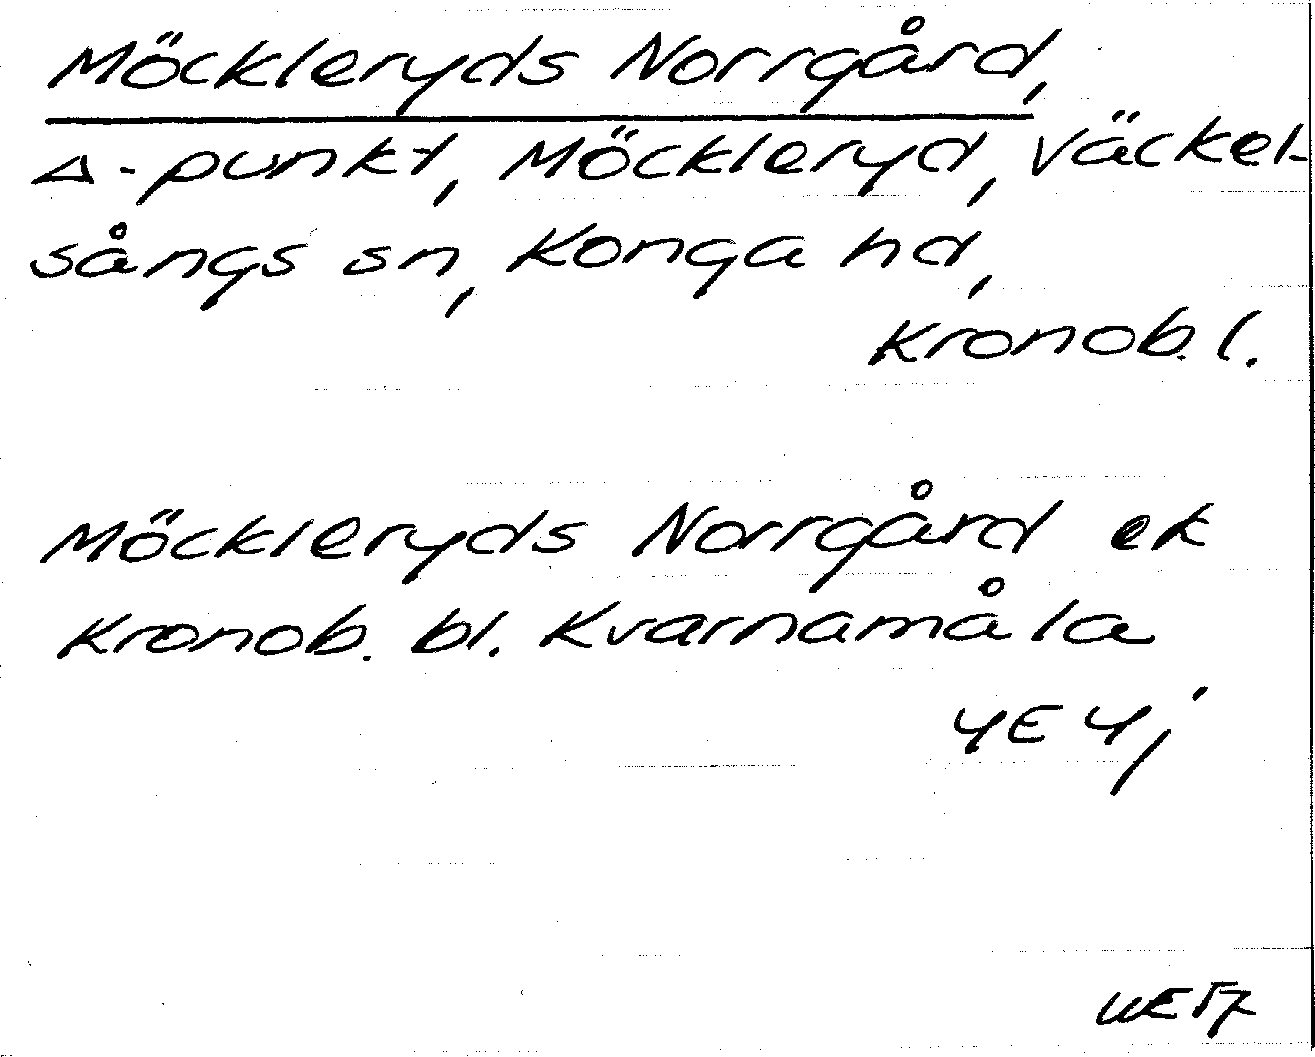 Möckleryds Norrgård,
Δ-punkt, Möckleryd, Väckel-
sångs sn, Konga hd,
Kronob. l.
Möckleryds Norrgård ek
Kronob. bl. Kvarnamåla
4E 4j